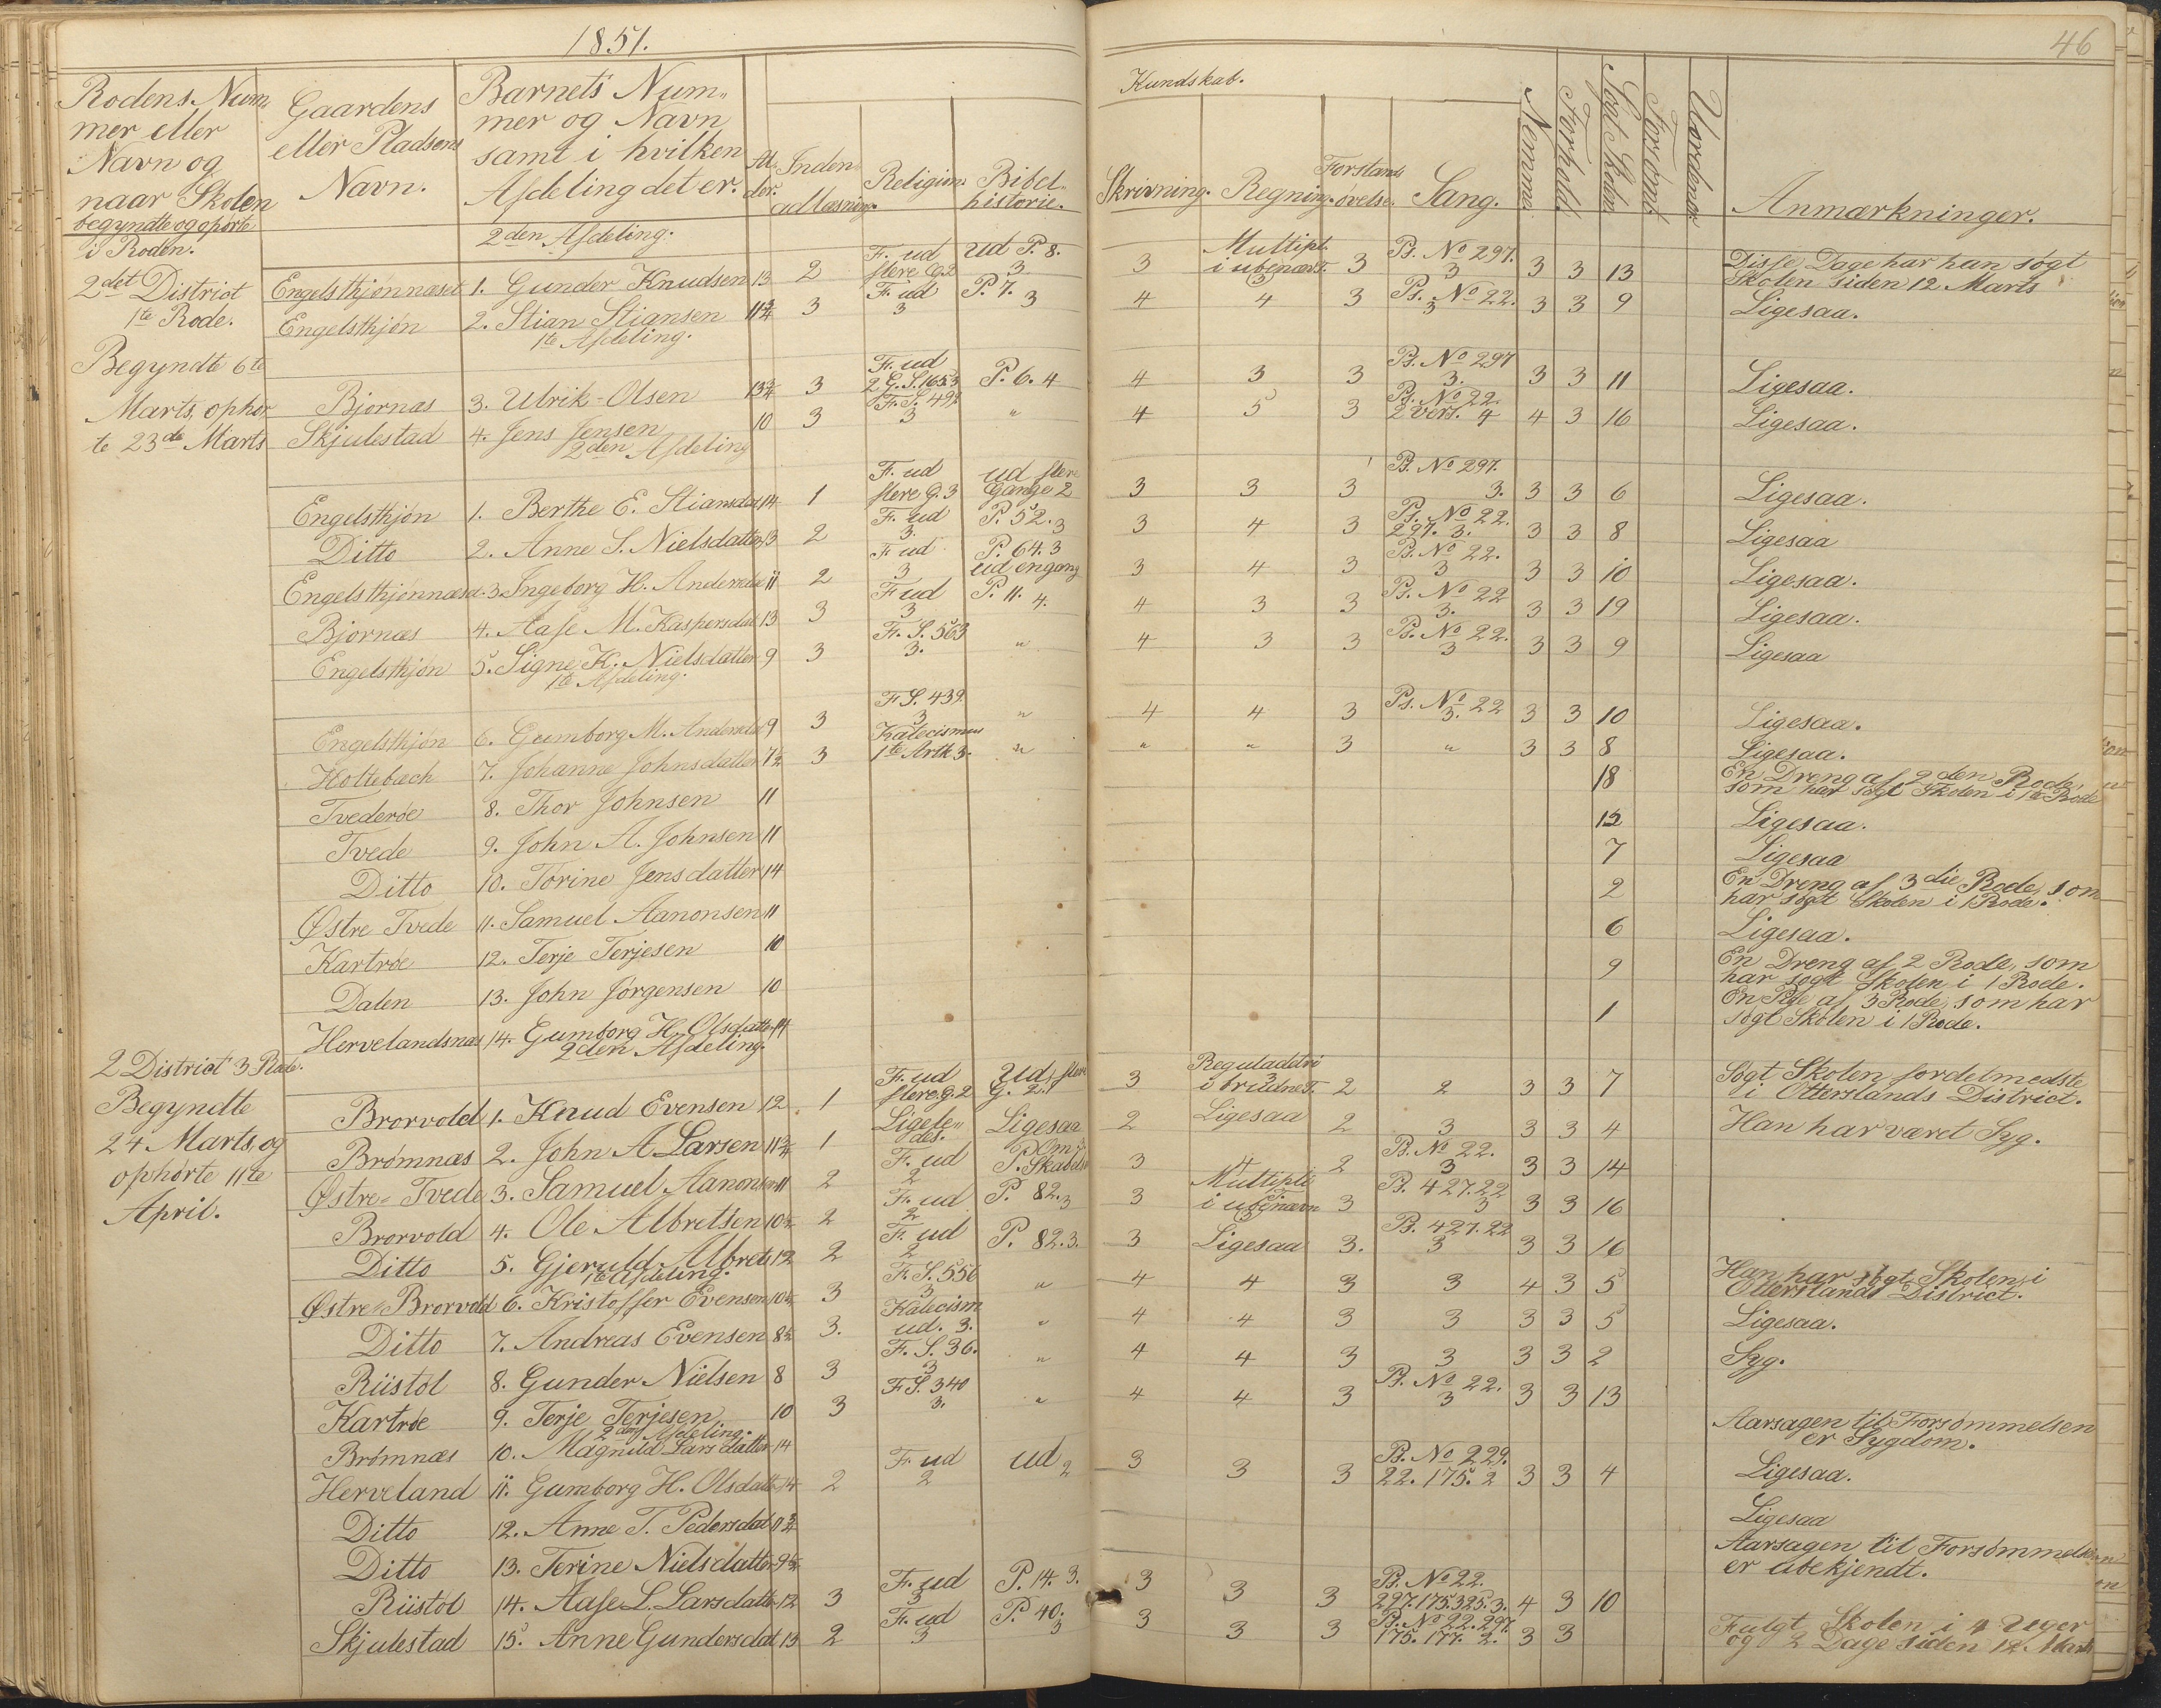 1851.
46
Rodens Num-
mer eller
Navn og
naar Skolen
begyndte og ophørte
i Roden.
Gaardens
eller Pladsens
Navn.
Barnets Num-
mer og Navn
samt i hvilken
Afdeling det er.
Al-
der.
Kundskab.
Inden-
adlæsning.
Religion.
Bibel-
historie.
Skrivning.
Regning.
Forstands
øvelse.
Sang.
Nemme.
Forhold.
Søgt Skolen.
Forsømt.
Uordener.
Anmærkninger.
2det District
1te Rode.
Begyndte 6te
Marts, ophør
te 23de Marts
2den Afdeling.
Engelsthjønnæset 1. Gunder Knudsen 13 2 F. ud flere G. 2 ud P. 8. 3 3 Multipl. i ubenævt. 3 3 Ps. No 297. 3 3 3 13 Disse Dage har han søgt
Skolen siden 12 Marts
Engelsthjøn 2. Stian Stiansen 11 3/4 3 F. ud 3 P. 7. 3 4 4 3 Ps. No 22. 3 3 3 9 Ligesaa.
1te Afdeling.
Bjørnæs 3. Ulrik Olsen 13 3/4 3 F. ud 2 G. S. 165. 3 P. 6. 4 4 3 3 Ps. No 297 3. 3 3 11 Ligesaa.
Skjulestad 4. Jens Jensen 10 3 F. S. 49. 3 " 4 5 3 Ps. No 22. 2 vers. 4 4 3 16 Ligesaa.
2den Afdeling
Engelsthjøn 1. Berthe E. Stiansdat 14 1 F. ud flere G. 3 ud flere Gange 2 3 3 3 Ps. No 297. 3. 3 3 6 Ligesaa.
Ditto 2. Anne S. Nielsdatter 13 2 F. ud 3. P. 52. 3 3 4 3 Ps. No 22. 297. 3. 3 3 8 Ligesaa
Engelsthjønnæset 3. Ingeborg H. Andersdat 11 2 F ud 3 P. 64. 3 ud engang 3 4 3 Ps. No 22. 3 3 3 10 Ligesaa.
Bjørnæs 4. Aase M. Kaspersdat 13 3 F ud 3 P. 11. 4. 4 3 3 Ps. No 22 3. 3 3 19 Ligesaa.
Engelsthjøn 5. Signe K. Nielsdatter 9 3 F. S. 563 3. " 4 3 3 Ps. No 22. 3 3 3 9 Ligesaa
1te Afdeling.
Engelsthjøn 6. Gumborg M. Andersdat 9 3 F S. 439. 3 " 4 4 3 Ps. No 22 3. 3 3 10 Ligesaa.
Holtebæch 7. Johanne Johnsdatter 7 1/2 3 Katecismus 1te Artk 3. " " " 3 " 3 3 8 Ligesaa.
Tvederøe 8. Thor Johnsen 11 18 En Dreng af 2den Rode,
som har søgt Skolen i 1te Rode
Tvede 9. John A. Johnsen 11 12 Ligesaa.
Ditto 10. Torine Jensdatter 14 7 Ligesaa
Østre Tvede 11. Samuel Aanonsen 11 2 En Dreng af 3die Rode, som
har søgt Skolen i 1 Rode.
Kartrøe 12. Terje Terjesen 10 6 Ligesaa.
Dalen 13. John Jørgensen 10 9 En Dreng af 2 Rode, som
har søgt Skolen i 1 Rode.
Hervelandsnæs 14. Gumborg H. Olsdatter 14 1 En Pige af 3 Rode, som har
søgt Skolen i 1 Rode.
2den Afdeling.
2 District 3 Rode.
Begyndte
24 Marts, og
ophørte 11te
April.
Brorvold 1. Knud Evensen 12 1 F. ud flere G. 2 ud flere G. 2. 3 Reguladetri i brudne T. 3 2 2 3 3 7 Søgt Skolen fordetmedste
i Otterslands District.
Brømnæs 2. John A Larsen 11 3/4 1 Ligele- des. Ligesaa 2 Ligesaa 2 3 3 3 4 Han har været Syg.
Østre Tvede 3. Samuel Aanonsen 11 2 F. ud 2 3 4 2 Ps. No 22. 3 3 3 14
Brorvold 4. Ole Albretsen 10 1/2 2 F. ud 2 P. 82. 3 3 Multipli i ubenævn 3 3 Ps. 427. 22 3 3 3 16
Ditto 5. Gjeruld Albrets 12 2 F. ud 2 P. 82. 3. 3 Ligesaa 3. Ps. 427. 22 3 3 3 16
1te Afdeling.
Østre Brorvold 6. Kristoffer Evensen 10 1/2 3 F. S. 556 3 " 4 4 3 3 4 3 5 Han har søgt Skolen i
Otterslands District.
Ditto 7. Andreas Evensen 8 1/2 3. Katecism ud. 3. " 4 4 3 3 3 3 5 Ligesaa.
Riistøl 8. Gunder Nielsen 8 3 F. S. 36. 3 " 4 4 3 3 3 3 2 Syg.
Kartrøe 9. Terje Terjesen 10 3 F S. 340 3. " 4 4 3 Ps. No 22. 3 3 3 13
2den Afdeling.
Brømnæs 10. Magnild Larsdatter 14 Aarsagen til Forsømmelsen
er Sygdom.
Herveland 11. Gumborg H. Olsdatt 14 2 F ud 2 ud 2 3 3 3 Ps. No 229. 22. 175. 2 3 3 4 Ligesaa.
Ditto 12. Anne T. Pedersdat 11 3/4 Ligesaa
Ditto 13. Terine Nielsdatter 9 1/2 Aarsagen til Forsømmelsen
er ubekjendt.
Riistøl 14. Aase L. Larsdatt 12 3 F. ud 3 P. 14. 3. 3 3 3 Ps. No 22. 297. 175. 325. 3. 4 3 10
Skjulestad 15. Anne Gundersdat 13 2 F. ud 3 P. 40. 3 3 3 3 Ps. No 22. 297. 175. 177. 2. 3 3 Fulgt Skolen i 4 Uger
og 2 Dage siden 12 Marts